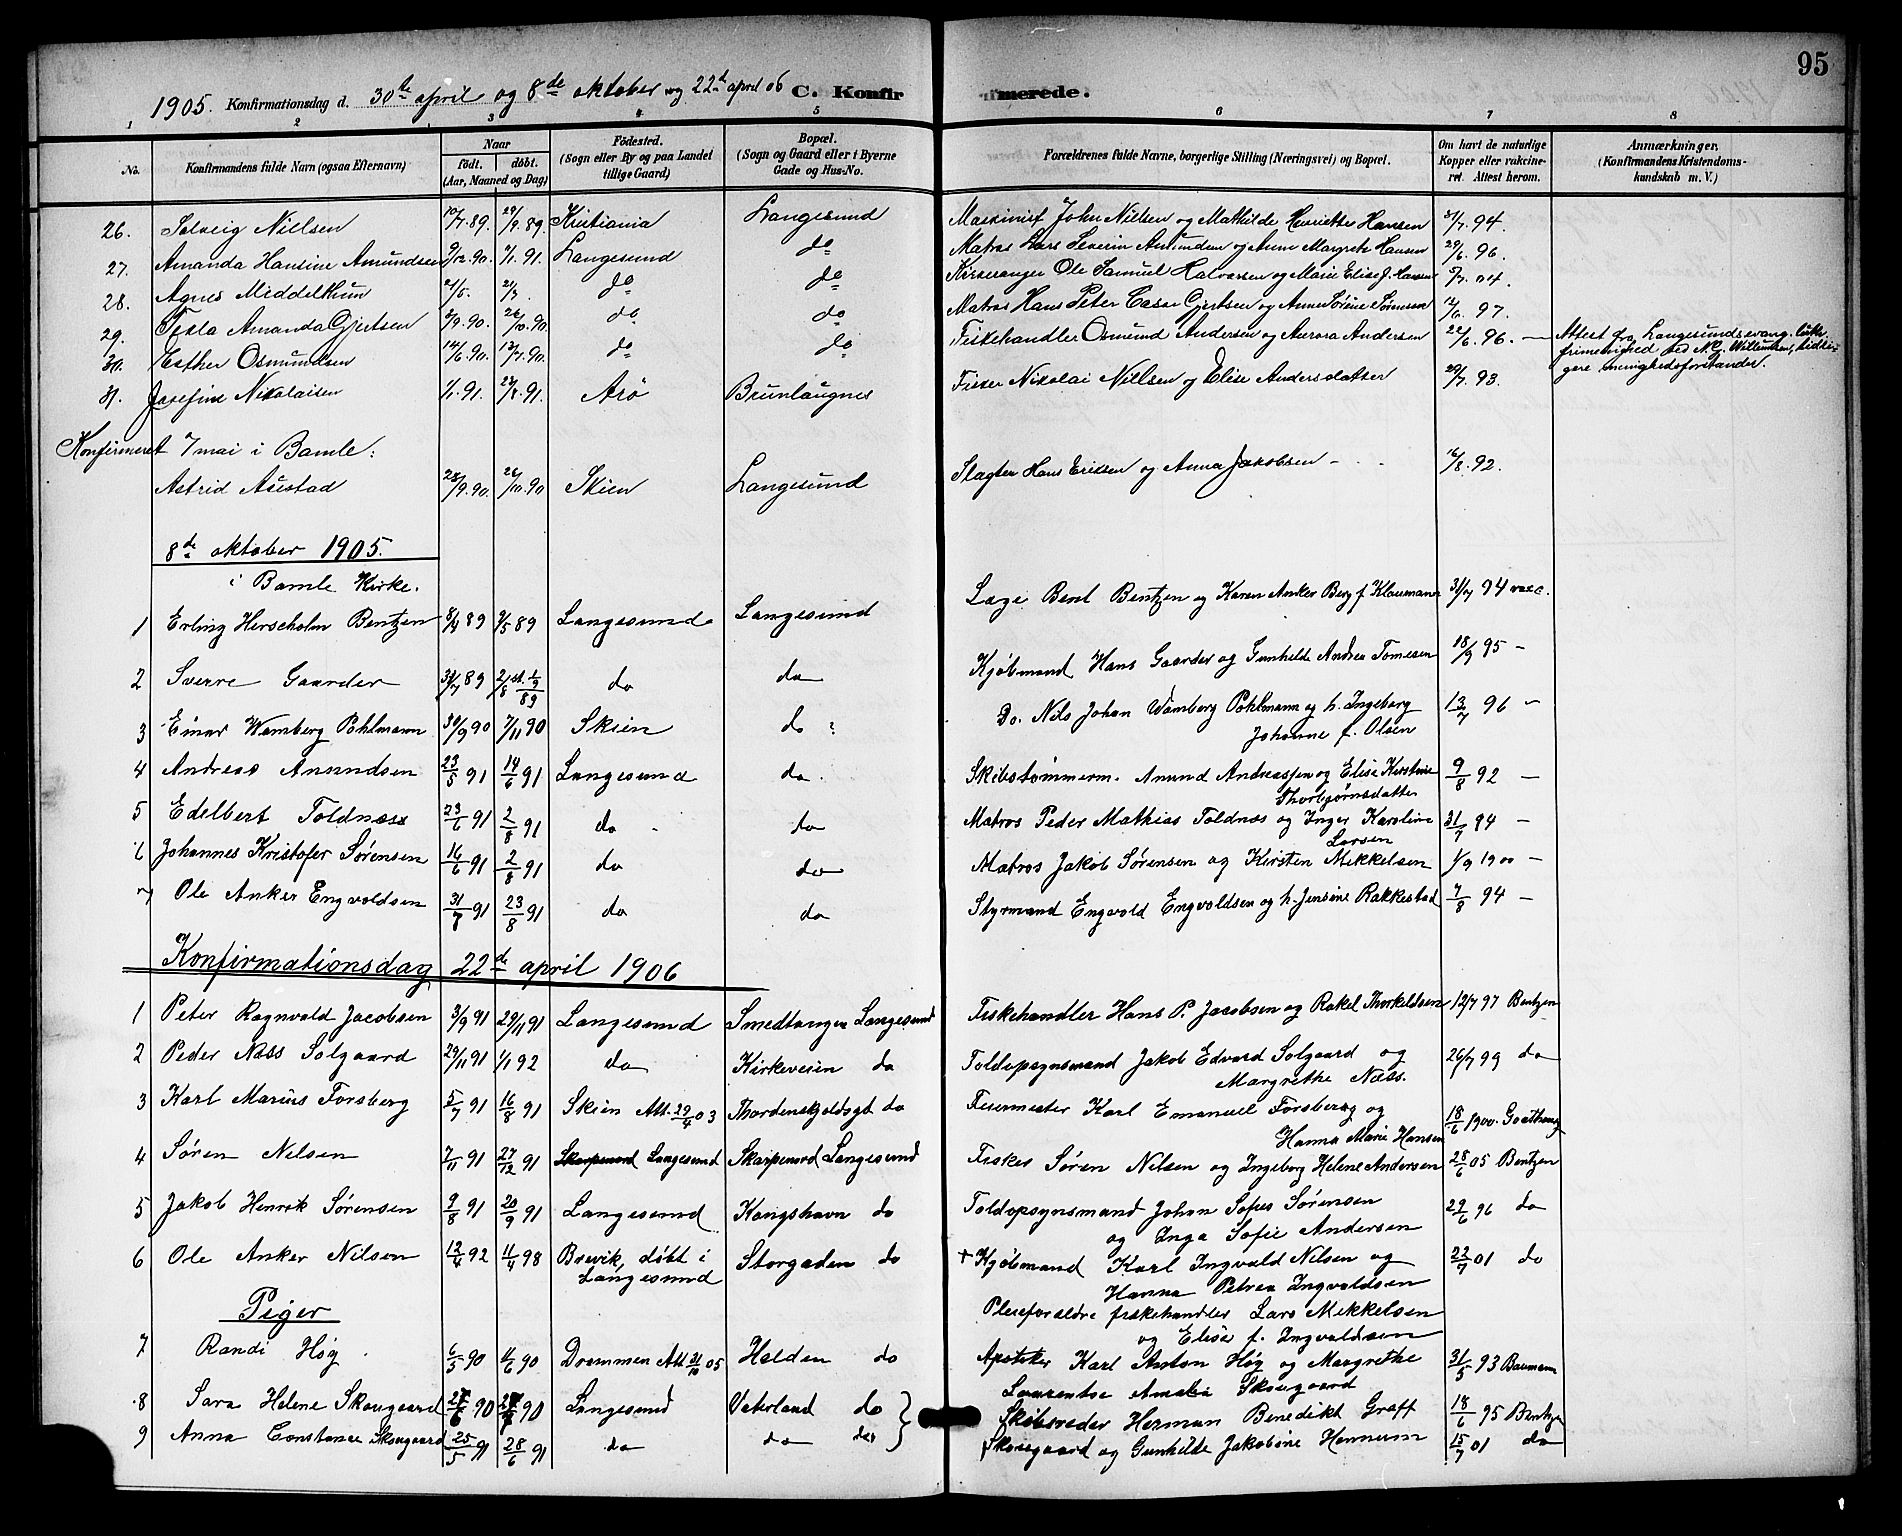 95
1905. Konfirmationsdag d. 30te april og 8de oktober og 22de april 06 C. Konfirmerede.
1 2 3 4 5 6 7 8
No. Konfirmandens fulde Navn (ogsaa Efternavn) Naar født. døbt. (Aar, Maaned og Dag) Fødested. (Sogn eller By og paa Landet tillige Gaard) Bopæl. (Sogn og Gaard eller i Byerne Gade og Hus-No. Forældrenes fulde Navne, borgerlige Stilling (Næringsvei) og Bopæl. Om havt de naturlige Kopper eller vakcineret. Attest herom. Anmærkninger. (Konfirmandens Kristendomskundskab m. V.)
26. Solveig Nielsen 10/7.89. 29/9.89. Kristiania Langesund Maskinist John Nielsen og Mathilde Henriette Hansen 31/7.94.
27. Amanda Hansine Amundsen 9/12.90. 11/1.91. Langesund do Matros Lars Severin Amundsen og Anne Margrete Hansen 29/6.96.
28. Agnes Middelthun 21/5. 2/3. do do Kirkesanger Ole Samuel Halvorsen og Marie Elise J. Hansen 5/7.04.
29. Tekla Amanda Gjertsen 2/9.90. 26/10.90. do do Matros Hans Peter Casar Gjertsen og Anne Sørine Sørensen 12/6.97.
30. Esther Osmundsen 14/6.90. 13/7.90. do do Fiskehandler Osmund Andersen og Aurora Andersen 22/6.96. — Attest fra Langesunds evang. luth. frimenighed ved N. J. Willumsen, tidligere menighedsforstander.
31. Josefine Nikolaisen 1/1.91. 28/8.91. Arø Brunlaugnes Fisker Nikolai Nielsen og Elise Andersdatter 29/7.93.
Konfirmeret 7 mai i Bamle:
Astrid Austad 28/9.90. 26/10.90 Skien Langesund Slagter Hans Eriksen og Anna Jakobsen - 16/8.92.
8de oktober 1905.
i Bamle Kirke.
1 Erling Herscholm Bentzen 8/4 89 9/5 89 Langesund Langesund Læge Bent Bentzen og Karen Anker Berg f. Klaumann 31/7 94 vacc.
2 Sverre Gaarder 31/7 89 2/8 st. 1/9 89 do do Kjøbmand Hans Gaarder og Gunhilde Andrea Tomesen 18/9 95 -
3 Einar Wamberg Pohlmann 30/9 90 7/11 90 Skien do Do. Nils Johan Wamberg Pohlmann og h. Ingeborg Johanne f. Olsen 13/7 96 -
4 Andreas Anundsen 23/5 91 14/6 91 Langesund do. Skibstømmerm. Anund Andreassen og Elise Kirstine Thorbjørnsdatter 9/8 92 —
5 Edelbert Toldnæss 23/6 91 2/8 91 do do Matros Peder Mathias Toldnæs og Inger Karoline Larsen 31/7 94 -
6 Johannes Kristofer Sørensen 16/6 91 2/8 91 do do Matros Jakob Sørensen og Kirsten Mikkelsen 1/9 1900 -
7 Ole Anker Engvoldsen 31/7 91 23/8 91 do do Styrmand Engvold Engvoldsen og h. Jensine Rakkestad 7/8 94 -
Konfirmationsdag 22de april 1906
1 Peter Ragnvald Jacobsen 3/9 91 29/11 91 Langesund Smedtangen Langesund Fiskehandler Hans P. Jacobsen og Rakel Thorkildsen 12/7 97 Bentzen
2 Peder Næss Solgaard 29/11 91 1/1 92 do Kirkeveien do Toldopsynsmand Jakob Edvard Solgaard og Margrethe Næss. 26/7 99 do
3 Karl Marius Forsberg 5/7 91 16/8 91 Skien Att. 29/4 03 Thordenskjoldsgt do Fyrmester Karl Emanuel Forsberg og Hanna Marie Hansen 18/6 1900.
4 Søren Nilsen 7/11 91 27/12 91 Skarpenord Langesund Skarpenord Langesund Fisker Søren Nilsen og Ingeborg Helene Andersen 28/6 05 Bentzen
5 Jakob Henrik Sørensen 9/8 91 20/9 91 Langesund Kongshavn do Toldopsynsmand Johan Sofus Sørensen og Inga Sofie Andersen 29/6 96 do
6 Ole Anker Nilsen 12/4 92 11/4 98 Brevik, døbt i Langesund Storgaden do + Kjøbmand Karl Ingvald Nilsen og Hanna Petrea Ingvaldsen 22/7 01 do
Pleieforældre fiskehandler Lars Mikkelsen og Elise f. Ingvaldsen
Piger
7 Randi Høg 6/5 90 11/6 90 Drammen Att. 31/10 05 Halden do Apotheker Karl Anton Høg og Margrethe Laurentse Amalia Skougaard 31/5 93 Baumann
8 Sara Helene Skougaard 90 90 Langesund Vaterland do Skibsreder Herman Benedikt Graff 18/6 95 Bentzen
9 Anna Constance Skougaard 25/5 91 28/6 91 do do do Skougaard og Gunhilde Jakobine Hennum 15/7 01 do